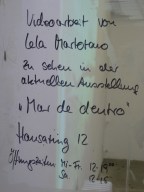 Videoarbeit von
Lala
zu sehen in der
aktuellen Ausstellung
„Mar de dentro“
Hansaring 12
Öffnungszeiten Mi-Fr
Sa